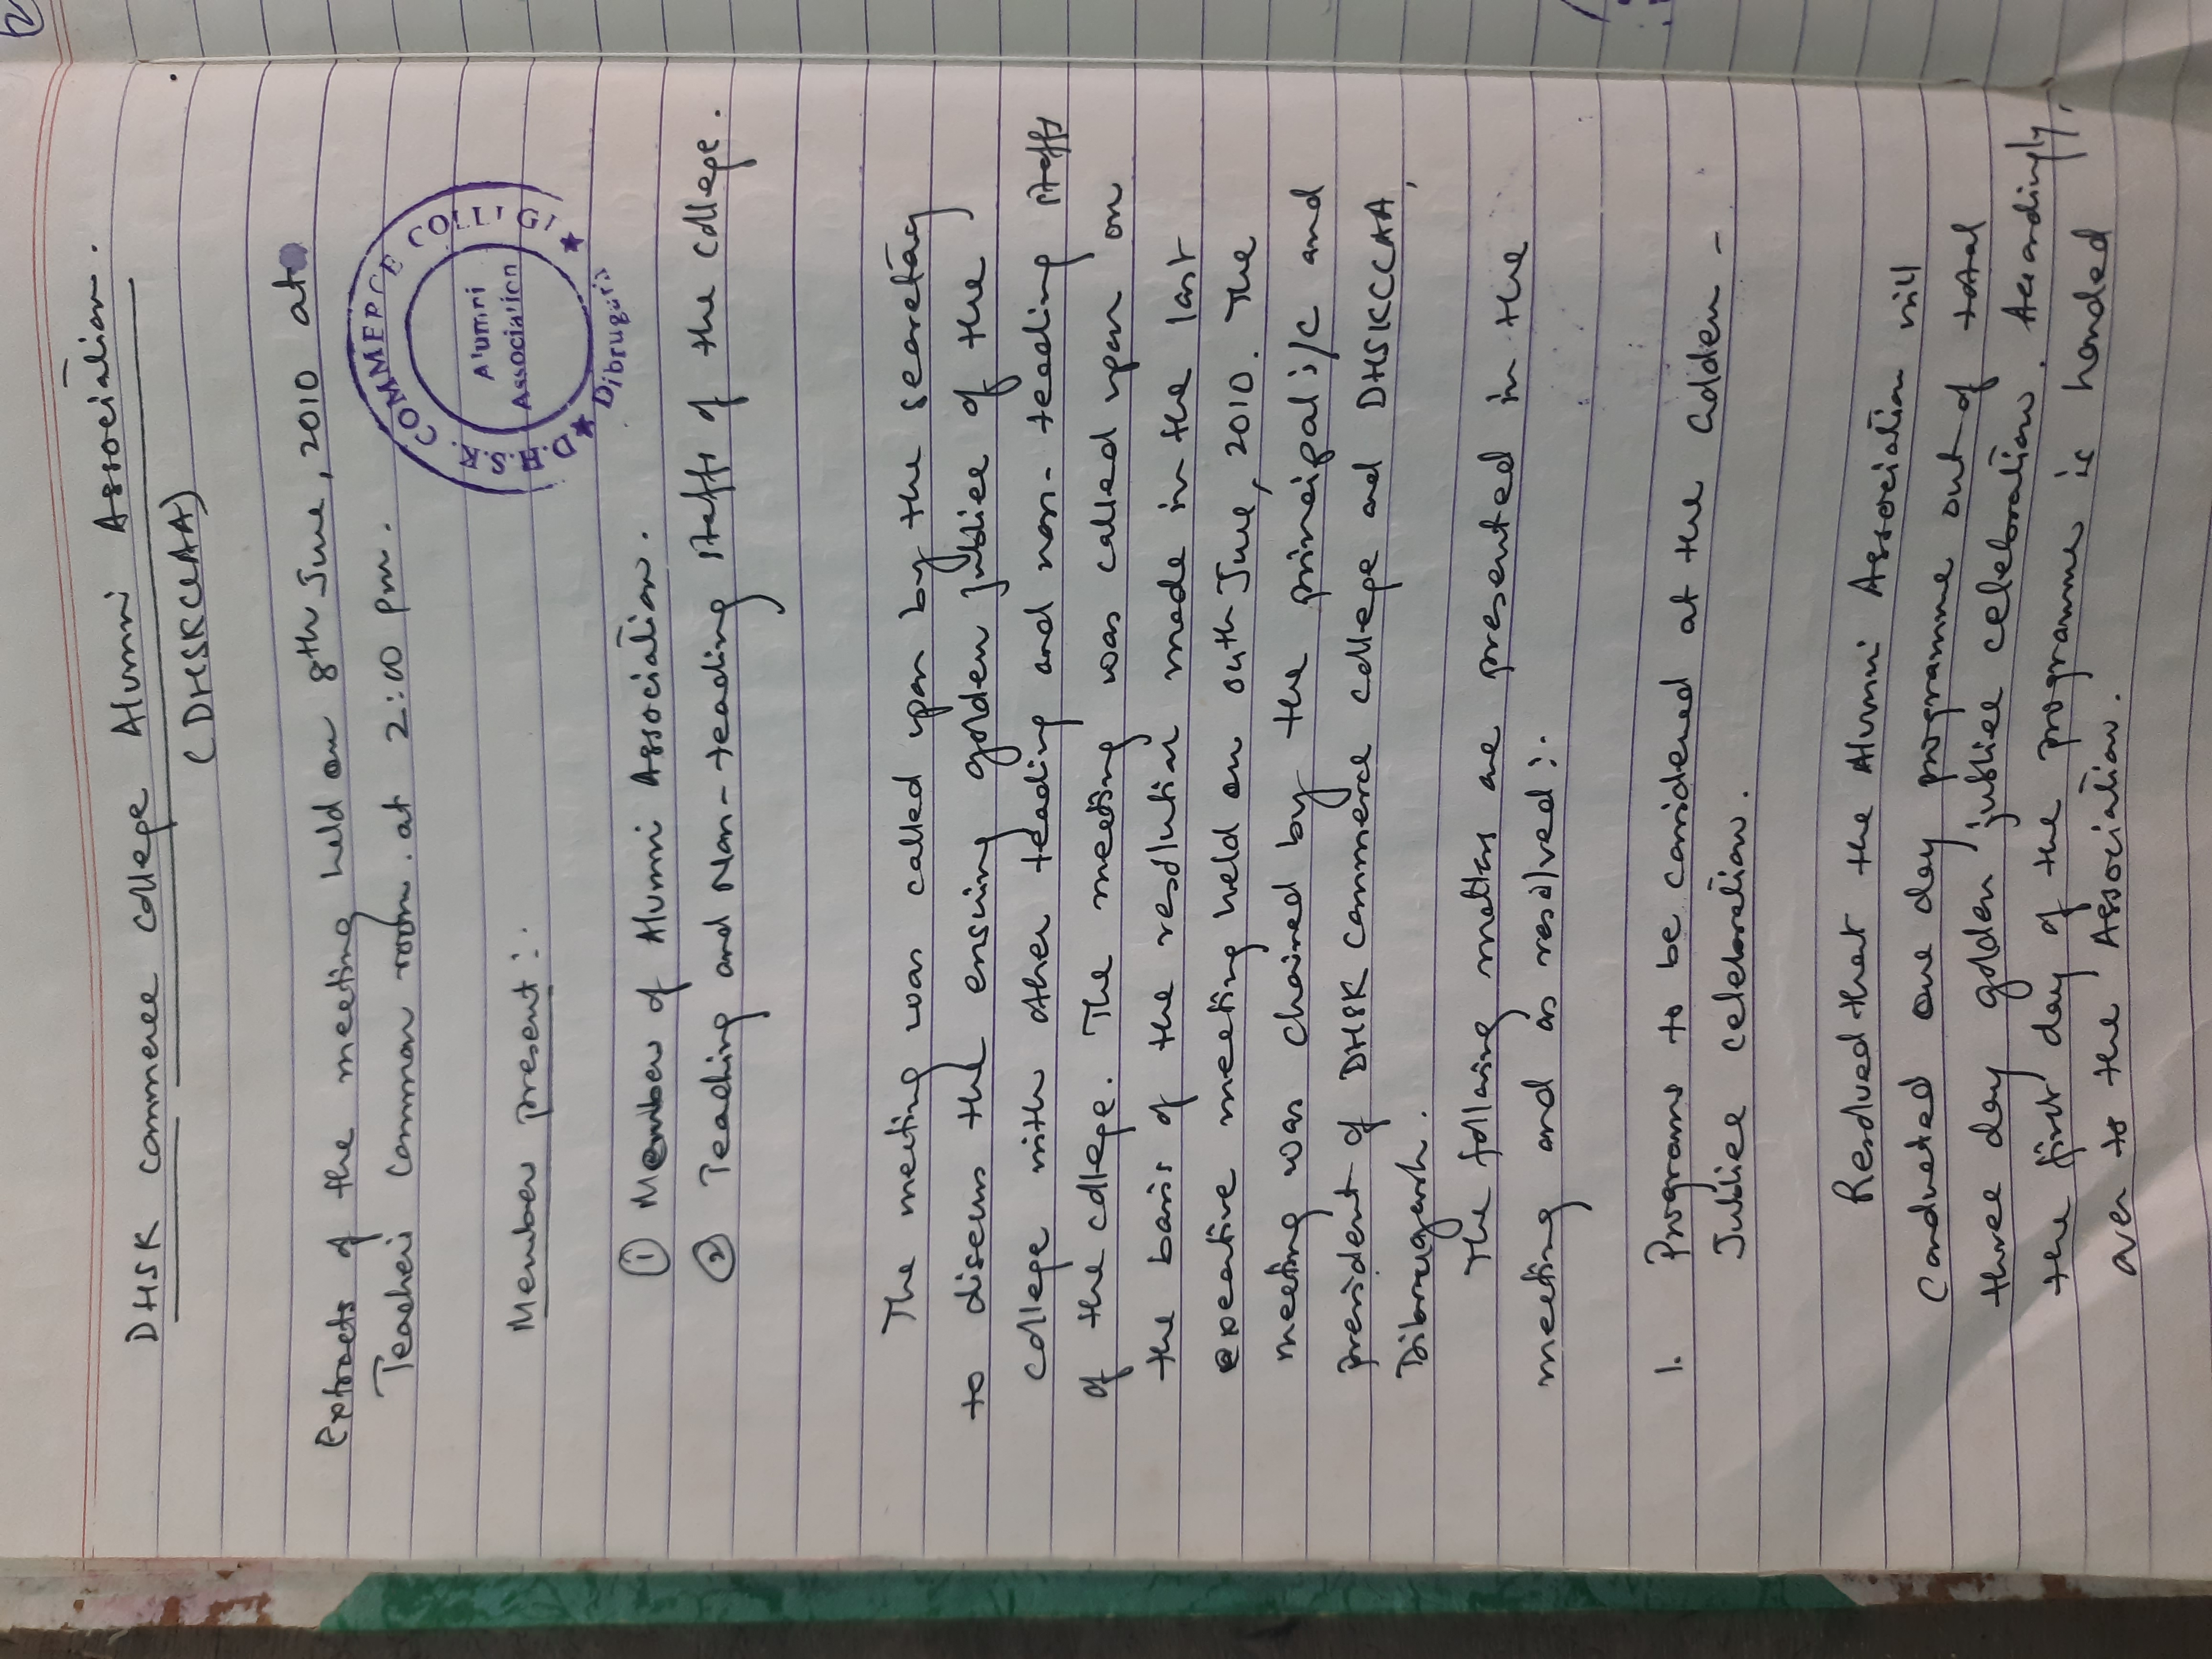 DHSK Commerce College Alumni Association.
(DHSKCCAA)
Extracts of the meeting held on 8th June, 2010 at
Teachers Common room. at 2:00 pm.
COMMERCE COLLEGE
D.H.S.K.
Alumni
Association
Dibrugarh
Member present :.
① Member of Alumni Association.
② Teaching and Non-teaching staffs of the College.
The meeting was called upon by the secretary
to discuss the ensuing golden jubliee of the
College with other teaching and non-teaching staffs
of the college. The meeting was called upon on
the basis of the resolution made in the last
executive meeting held on 04th June, 2010. The
meeting was chaired by the principal i/c and
president of DHSK Commerce College and DHSKCCAA,
Dibrugarh.
The following matters are presented in the
meeting and as resolved :.
1. Programs to be considered at the Golden -
Jubliee Celebration.
Resolved that the Alumni Association will
Conducted one day programme out of total
three day golden jubliee celebration. Accordingly,
the first day of the programme is handed
over to the Association.